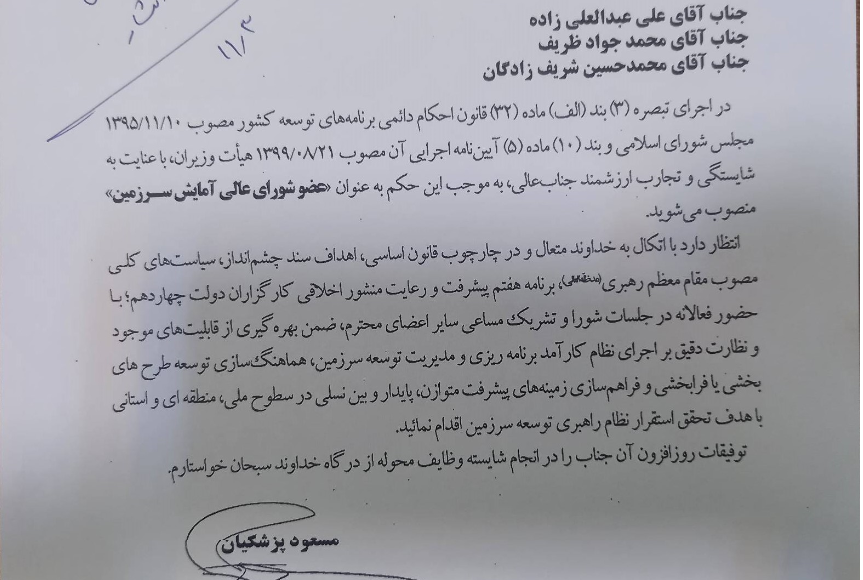 ۱۱/۳
جناب آقای علی عبدالعلی زاده
جناب آقای محمد جواد ظریف
جناب آقای محمدحسین شریف زادگان
در اجرای تبصره (۳) بند (الف) ماده (۳۲) قانون احکام دائمی برنامه‌های توسعه کشور مصوب ۱۳۹۵/۱۱/۱۰
مجلس شورای اسلامی و بند (۱۰) ماده (۵) آیین‌نامه اجرایی آن مصوب ۱۳۹۹/۰۸/۲۱ هیأت وزیران، با عنایت به
شایستگی و تجارب ارزشمند جناب‌عالی، به موجب این حکم به عنوان «عضو شورای عالی آمایش سرزمین»
منصوب می‌شوید.
انتظار دارد با اتکال به خداوند متعال و در چارچوب قانون اساسی، اهداف سند چشم‌انداز، سیاست‌های کلی
مصوب مقام معظم رهبری (مدظله‌العالی)، برنامه هفتم پیشرفت و رعایت منشور اخلاقی کارگزاران دولت چهاردهم؛ با
حضور فعالانه در جلسات شورا و تشریک مساعی سایر اعضای محترم، ضمن بهره گیری از قابلیت‌های موجود
و نظارت دقیق بر اجرای نظام کارآمد برنامه ریزی و مدیریت توسعه سرزمین، هماهنگ‌سازی توسعه طرح های
بخشی یا فرابخشی و فراهم‌سازی زمینه‌های پیشرفت متوازن، پایدار و بین نسلی در سطوح ملی، منطقه ای و استانی
با هدف تحقق استقرار نظام راهبری توسعه سرزمین اقدام نمائید.
توفیقات روزافزون آن جناب را در انجام شایسته وظایف محوله از درگاه خداوند سبحان خواستارم.
مسعود پزشکیان